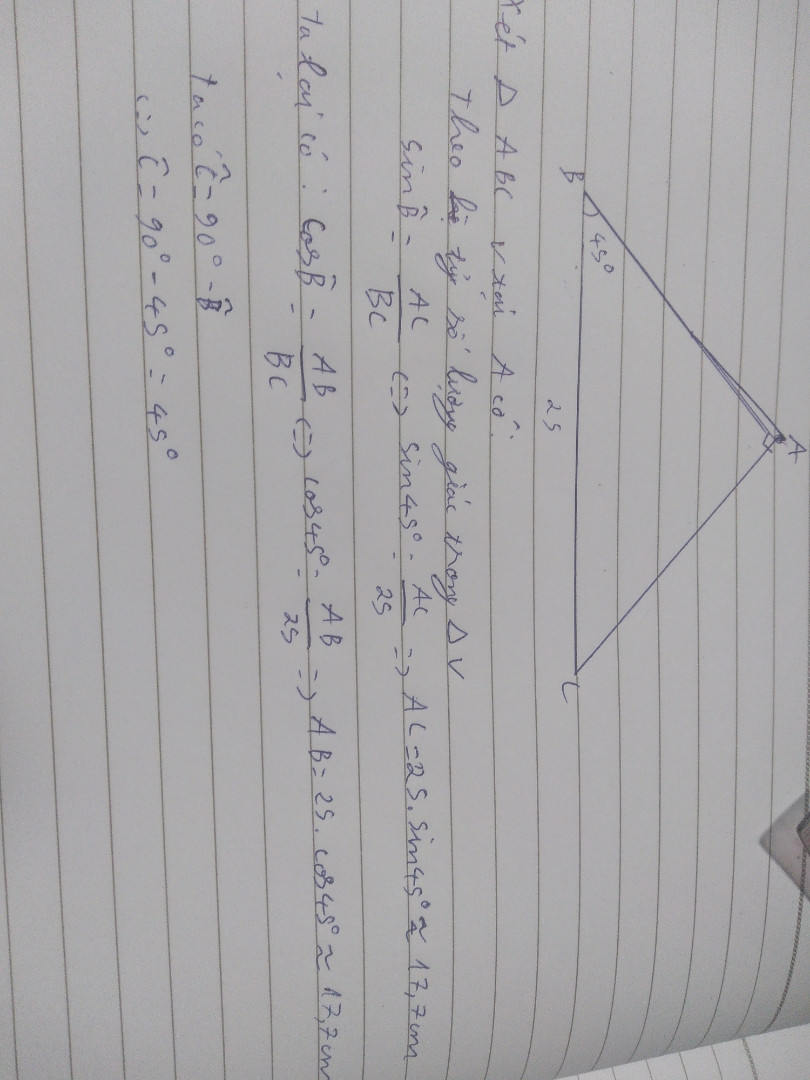 A
B
45°
25
C
Xét Δ ABC v tại A có:
Theo tỷ số lượng giác trong Δ V
sin B̂ = AC/BC (=) sin45° = AC/25 =) AC = 25. sin45° ≈ 17,7cm
Ta lại có: Cos B̂ = AB/BC (=) cos45° = AB/25 =) AB = 25. cos45° ≈ 17,7cm
ta có Ĉ = 90° - B̂
(=) Ĉ = 90° - 45° = 45°